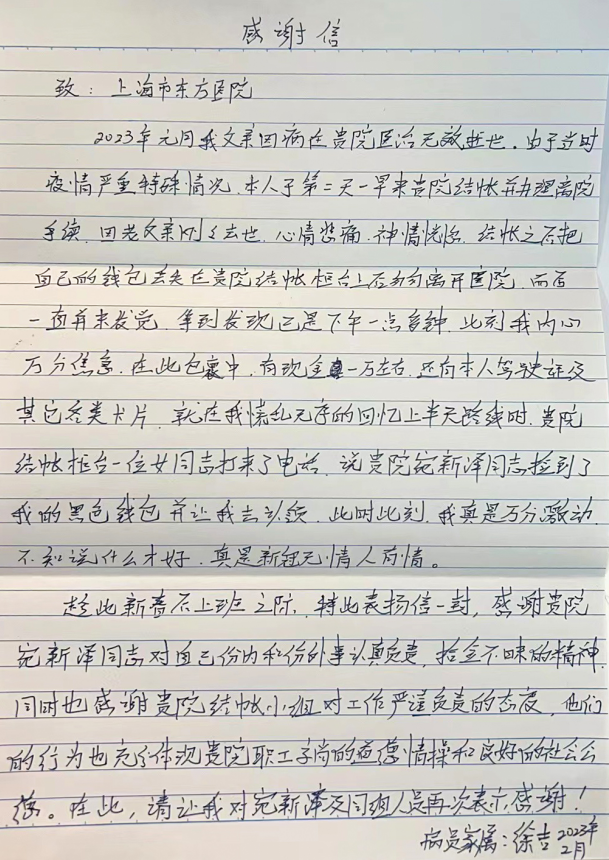 感谢信
致：上海市东方医院
2023年元月我父亲因病在贵院医治无效逝世．由于当时
疫情严重特殊情况．本人于第二天一早来贵院结帐并办理离院
手续．因老父亲刚刚去世．心情悲痛．神情恍惚．结帐之后把
自己的钱包丢失在贵院结帐柜台上后匆匆离开医院．而后
一直并未发觉．等到发现已是下午一点多钟．此刻我内心
万分焦急．在此包裹中．有现金一万左右．还有本人驾驶证及
其它各类卡片．就在我慌乱无序的回忆上半天路线时．贵院
结帐柜台一位女同志打来了电话．说贵院宛新泽同志捡到了
我的黑色钱包并让我去认领．此时此刻．我真是万分激动．
不知说什么才好．真是新冠无情人有情。
趁此新春后上班之际．特此表扬信一封．感谢贵院
宛新泽同志对自己份内和份外事认真负责．拾金不昧的精神．
同时也感谢贵院结帐小组对工作严谨负责的态度．他们
的行为也充分体现贵院职工高尚的道德情操和良好的社会公
德。在此，请让我对宛新泽及同组人员再次表示感谢！
病员家属：徐吉 2023年
2月